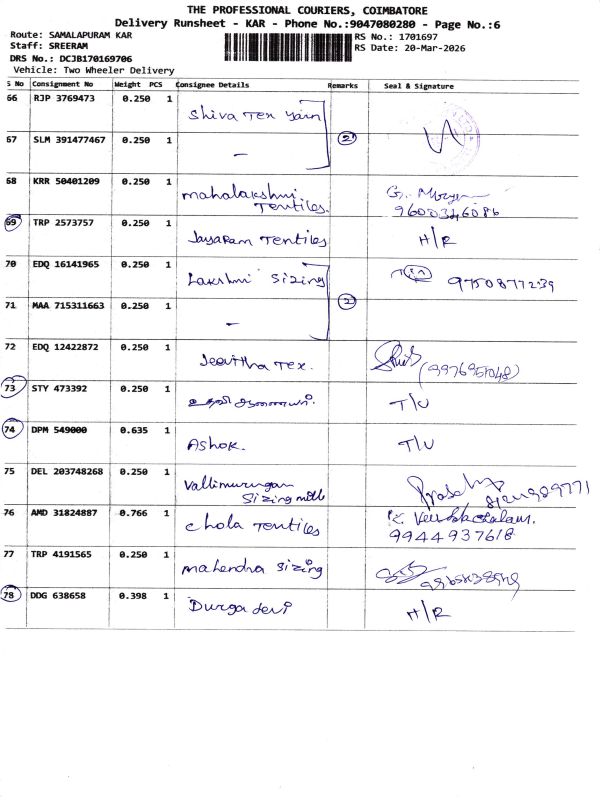 THE PROFESSIONAL COURIERS, COIMBATORE
Delivery Runsheet - KAR - Phone No.:9047080280 - Page No.:6
Route: SAMALAPURAM KAR
RS No.: 1701697
Staff: SREERAM
RS Date: 20-Mar-2026
DRS No.: DCJB170169706
Vehicle: Two Wheeler Delivery
S No Consignment No Weight PCS Consignee Details Remarks Seal & Signature
66 RJP 3769473 0.250 1 Shiva Tex yarn
67 SLM 391477467 0.250 1 - 2
68 KRR 50401209 0.250 1 mahalakshmi
Tentiles.
9600346086
69 TRP 2573757 0.250 1 Jayaram Tentiles H/R
70 EDQ 16141965 0.250 1 Lakshmi Sizing 9750877239
71 MAA 715311663 0.250 1 - 2
72 EDQ 12422872 0.250 1 Jeevitha Tex.
73 STY 473392 0.250 1 T/U
74 DPM 549000 0.635 1 Ashok. T/U
75 DEL 203748268 0.250 1 Vallimurugan
Sizing mill
76 AMD 31824887 0.766 1 Chola Tentiles
9944937618
77 TRP 4191565 0.250 1 mahendra Sizing
78 DDG 638658 0.398 1 Durga devi H/R